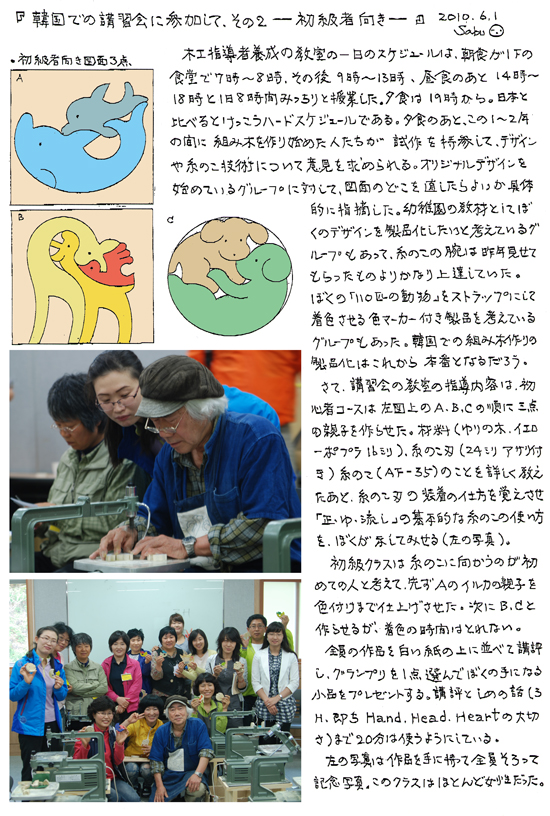 『韓国での講習会に参加して、その2 ー初級者向きー』 2010.6.1
Sabu
・初級者向き図面3点
A
B
C
木工指導者養成の教室の一日のスケジュールは、朝食が1Fの
食堂で7時〜8時、その後9時〜13時、昼食のあと14時〜
18時と1日8時間みっちりと授業した。夕食は19時から。日本と
比べるとけっこうハードスケジュールである。夕食のあと、この1〜2年
の間に組み木を作り始めた人たちが試作を持参して、デザイン
や糸のこ技術について意見を求められる。オリジナルデザインを
始めているグループに対して、図面のどこを直したらよいか具体
的に指摘した。幼稚園の教材としてぼ
くのデザインを製品化したいと考えているグ
ループもあって、糸のこの腕は昨年見せて
もらったものよりかなり上達していた。
ぼくの「110匹の動物」をストラップにして
着色させる色マーカー付き製品を考えている
グループもあった。韓国での組み木作りの
製品化はこれから本番となるだろう。
さて、講習会の教室の指導内容は、初
心者コースは左図上のA.B.Cの順に三点
の親子を作らせた。材料(ゆりの木、イエロ
ーポプラ16ミリ)、糸のこ刃(24ミリアサリ付
き)糸のこ(AF-35)のことを詳しく教え
たあと、糸のこ刃の装着の仕方を覚えさせ
「正・ゆ・流し」の基本的な糸のこの使い方
を、ぼくが示してみせる(左の写真)。
初級クラスは糸のこに向かうのが初
めての人と考えて、先ずAのイルカの親子を
色付けまで仕上げさせた。次にB.Cと
作らせるが、着色の時間はとれない。
全員の作品を白い紙の上に並べて講評
し、グランプリを1点選んでぼくの手になる
小品をプレゼントする。講評としめの話(3
H.即ちHand.Head.Heartの大切
さ)まで20分は使うようにしている。
左の写真は作品を手に持って全員そろって
記念写真。このクラスはほとんど女性だった。